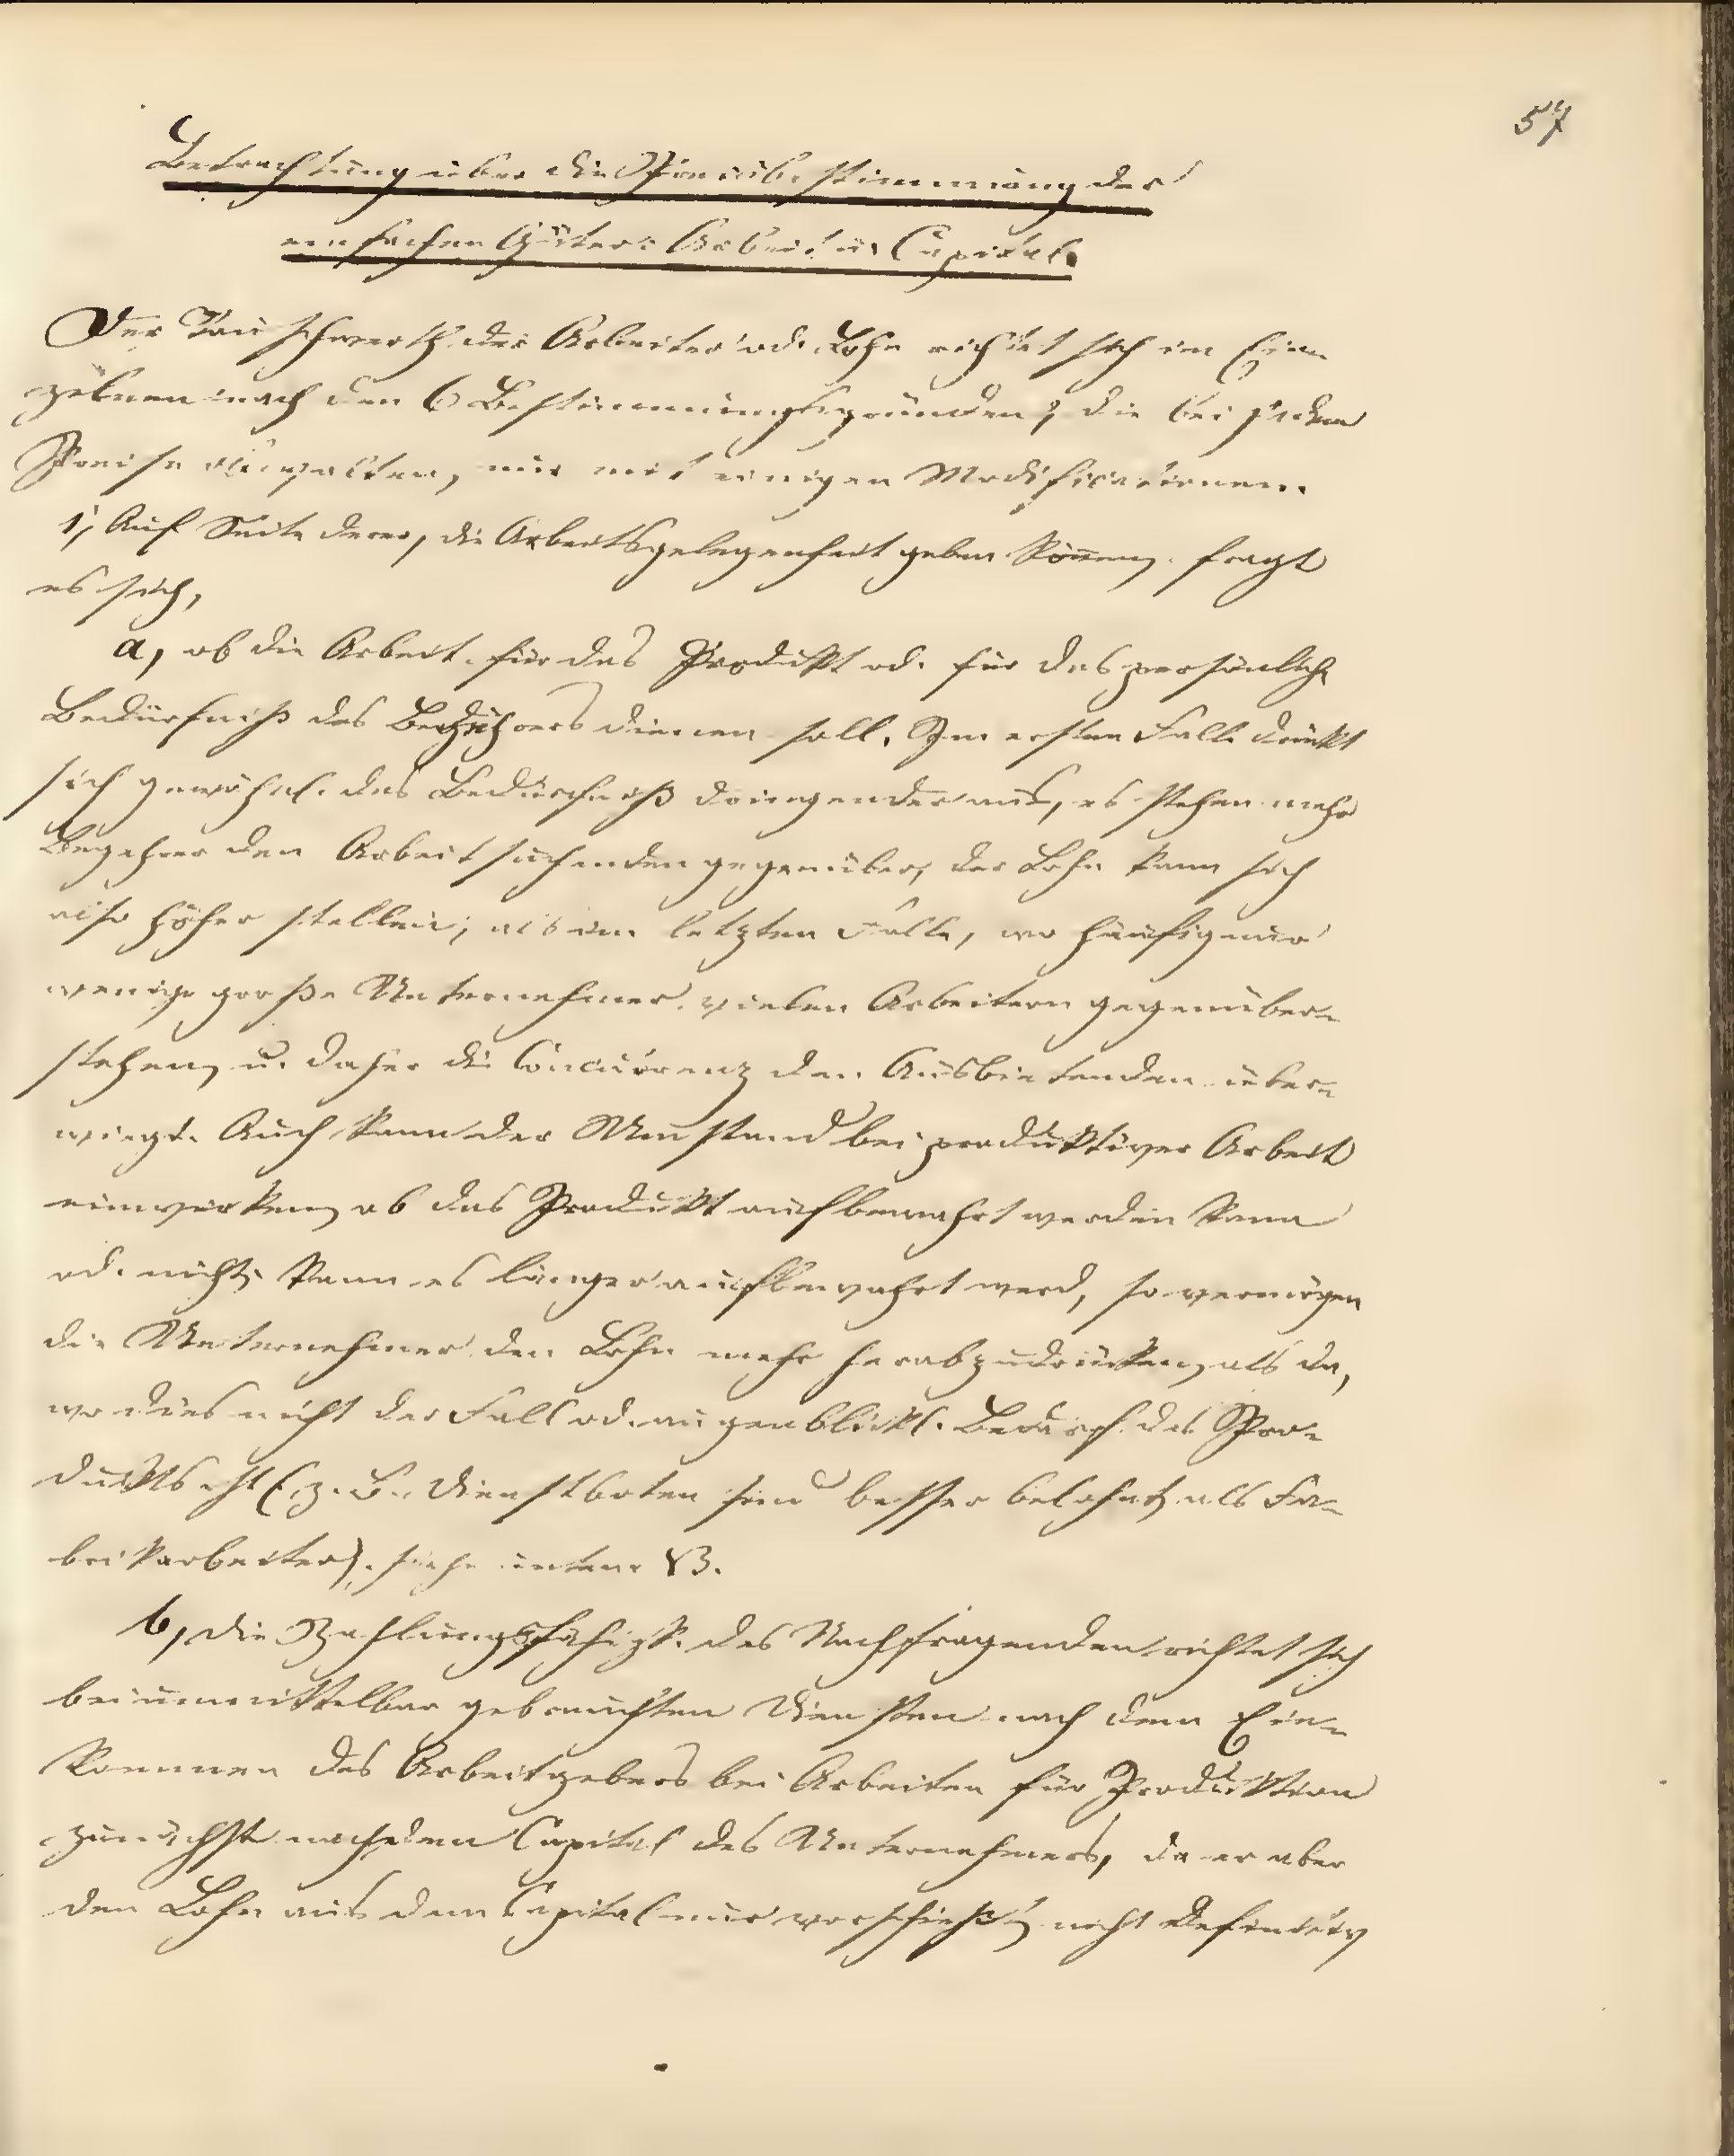 57
Betrachtung über die Preisbestimmung der
einfachen Güter: Arbeit u. Capital.
Der Tauschwerth der Arbeiter od. Lohn richtet sich im Ein
zelnen nach den 6 Bestimmungsgründen, die bei jedem
Preise obwalten, nur mit einigen Modificationen.
1, Auf Seite derer, die Arbeitsgelegenheit geben können, fragt
es sich,
a, ob die Arbeit für das Produkt od. für das persönliche
Bedürfniß des Begehrers dienen soll. Im ersten Falle drückt
sich gewöhnl. das Bedürfniß dringender aus, es stehen mehr
Begehrer den Arbeitsuchenden gegenüber, der Lohn kann sich
also höher stellen, als im letzten Falle, wo häufig nur
wenige große Unternehmer vielen Arbeitern gegenüber-
stehen, u. daher die Concurrenz der Ausbietenden über-
wiegt. Auch kann der Umstand bei produktiver Arbeit
einwirken, ob das Produkt aufbewahrt werden kann
od. nicht. Kann es länger aufbewahrt werd, so vermögen
die Unternehmer den Lohn mehr herabzudrücken, als da,
wo dies nicht der Fall od. augenblickl. Bedarf des Pro-
dukts ist (z. B. Dienstboten sind besser belohnt, als Fa-
brikarbeiter). siehe unten B.
b, die Zahlungsfähigk. des Nachfragenden richtet sich
bei unmittelbar gebrauchten Diensten nach dem Ein-
kommen des Arbeitgebers bei Arbeiten für Produktion
zunächst nach dem Capital des Unternehmers, da er aber
den Lohn aus dem Capital nur vorschießt, nicht definitiv